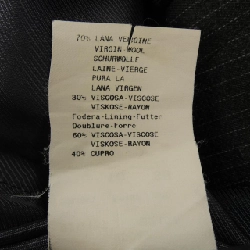 70% LANA VERGINE
VIRGIN-WOOL
SCHURWOLLE
LAINE-VIERGE
PURA LA
LANA VIRGEN
30% VISCOSA-VISCOSE
VISKOSE-RAYON
Fodera-Lining-Futter
Doublure-Forro
60% VISCOSA-VISCOSE
VISKOSE-RAYON
40% CUPRO